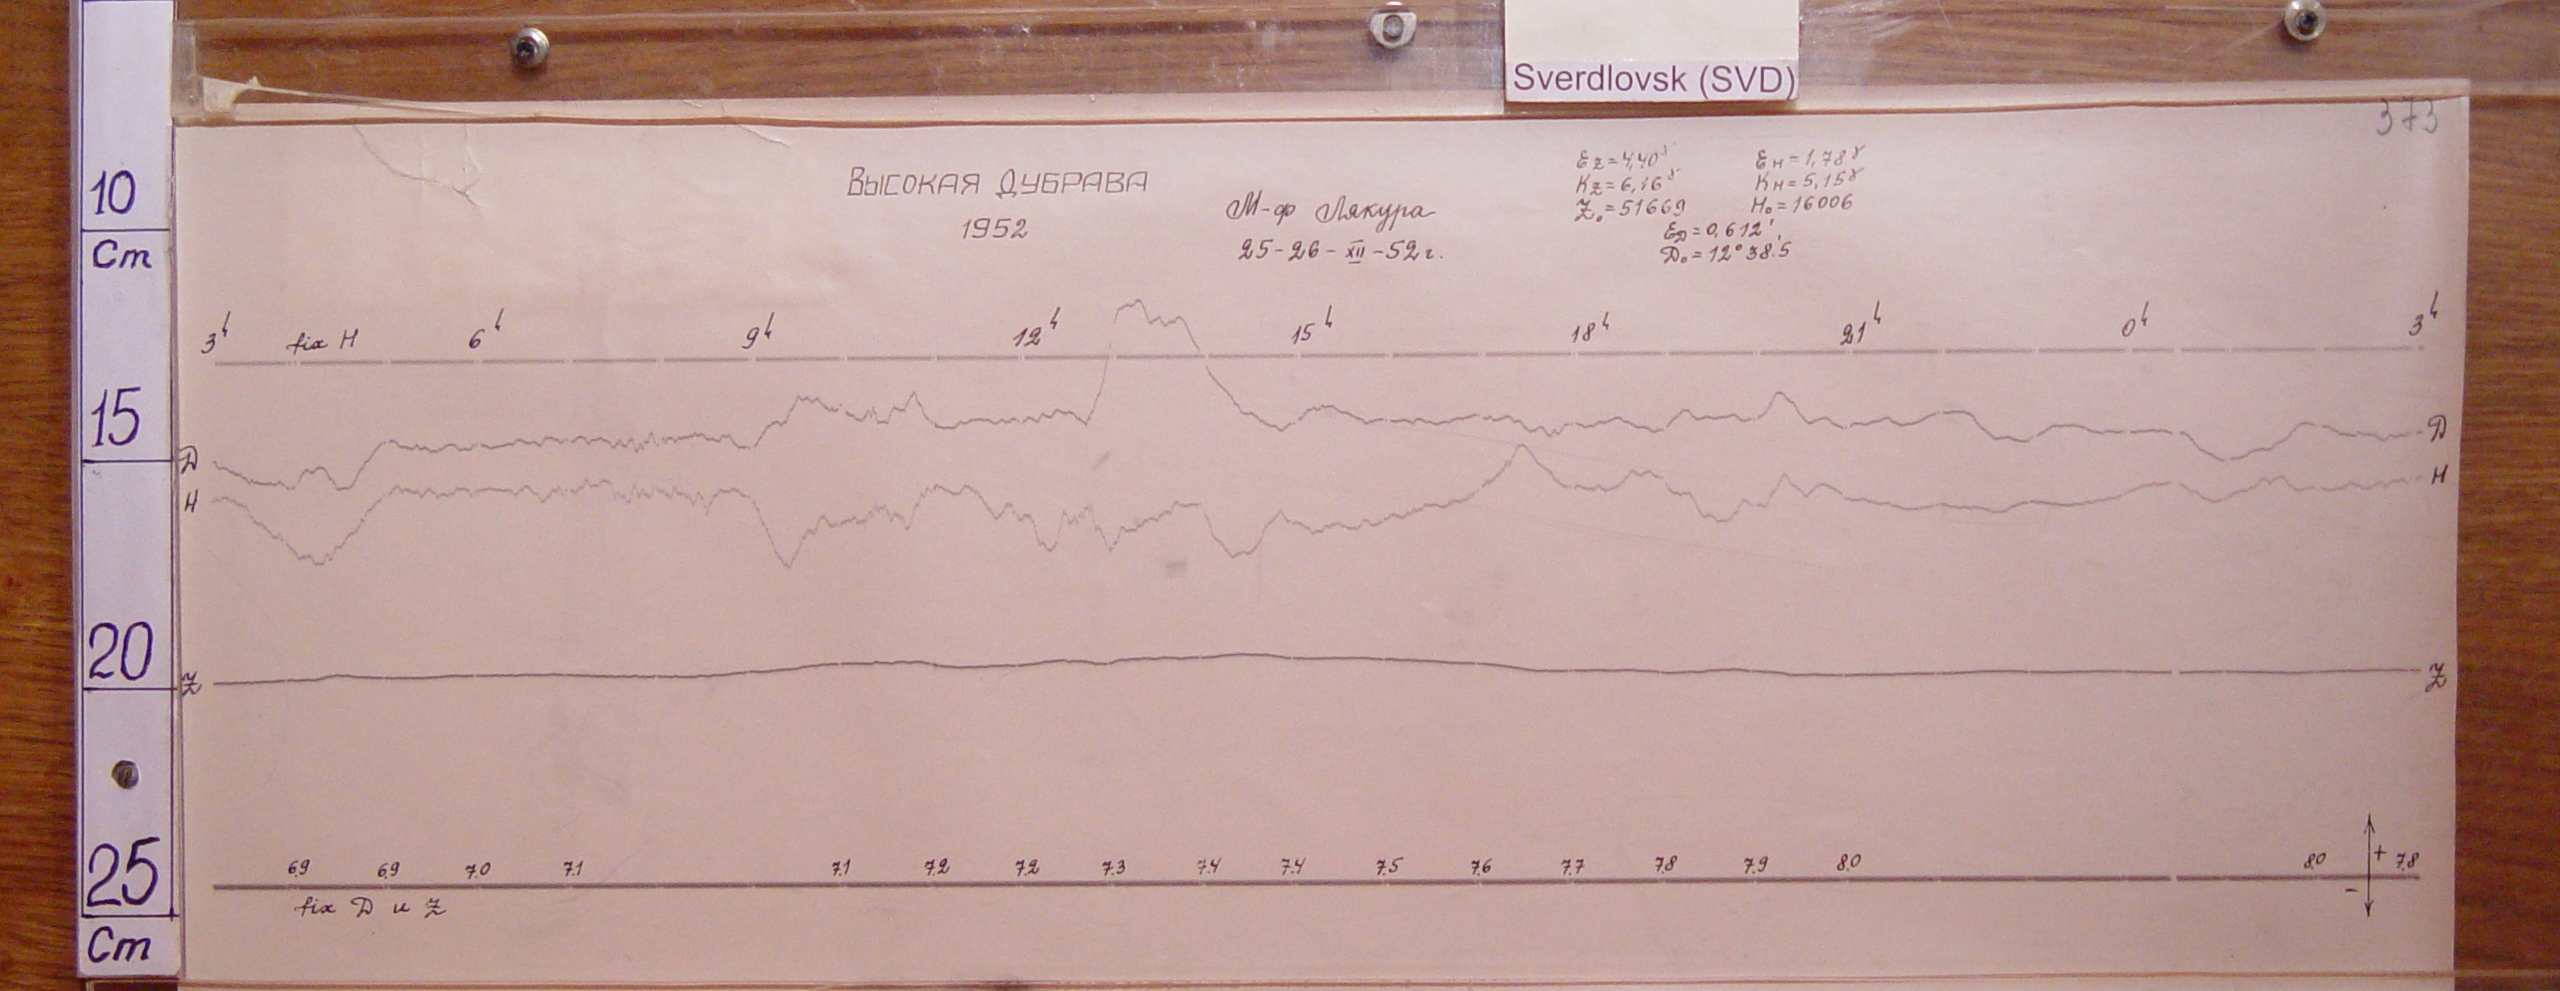 Sverdlovsk (SVD)
373
10
Cm
15
20
25
Cm
ВЫСОКАЯ ДУБРАВА
1952
М-ф Лякура
25-26-XII-52г.
Ez=4,40γ EH=1,78γ
Kz=6,16γ KH=5,15γ
Z₀=51669 H₀=16006
ED=0,612'
D₀=12°38'.5
3h fix H 6h 9h 12h 15h 18h 21h 0h 3h
D D
H H
Z Z
6.9 6.9 7.0 7.1 7.1 7.2 7.2 7.3 7.4 7.4 7.5 7.6 7.7 7.8 7.9 8.0 8.0 + 7.8
-
fix D и Z